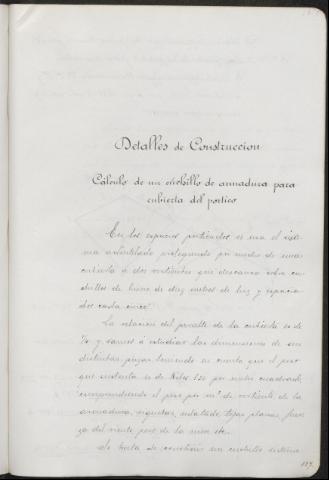 Detalles de Construccion
Calculo de un cuchillo de armadura para
cubierta del portico
En los espacios porticados se usa el siste-
ma adintelado protegiendo por medio de una
cubierta á dos vertientes que descansa sobre cu-
chillos de hierro de diez metros de luz y espacia-
dos cada cinco.
La relacion del peralte de la cubierta es de
y vamos á estudiar las dimensiones de sus
distintas piezas teniendo en cuenta que el peso
que sustenta es de Kilos por metro cuadrado
comprendiendo el peso por m². de vertiente de la
armadura, viguetas, entablado, tejas planas, fuer-
za del viento, peso de la nieve etc.
Se trata de construir un cuchillo sistema